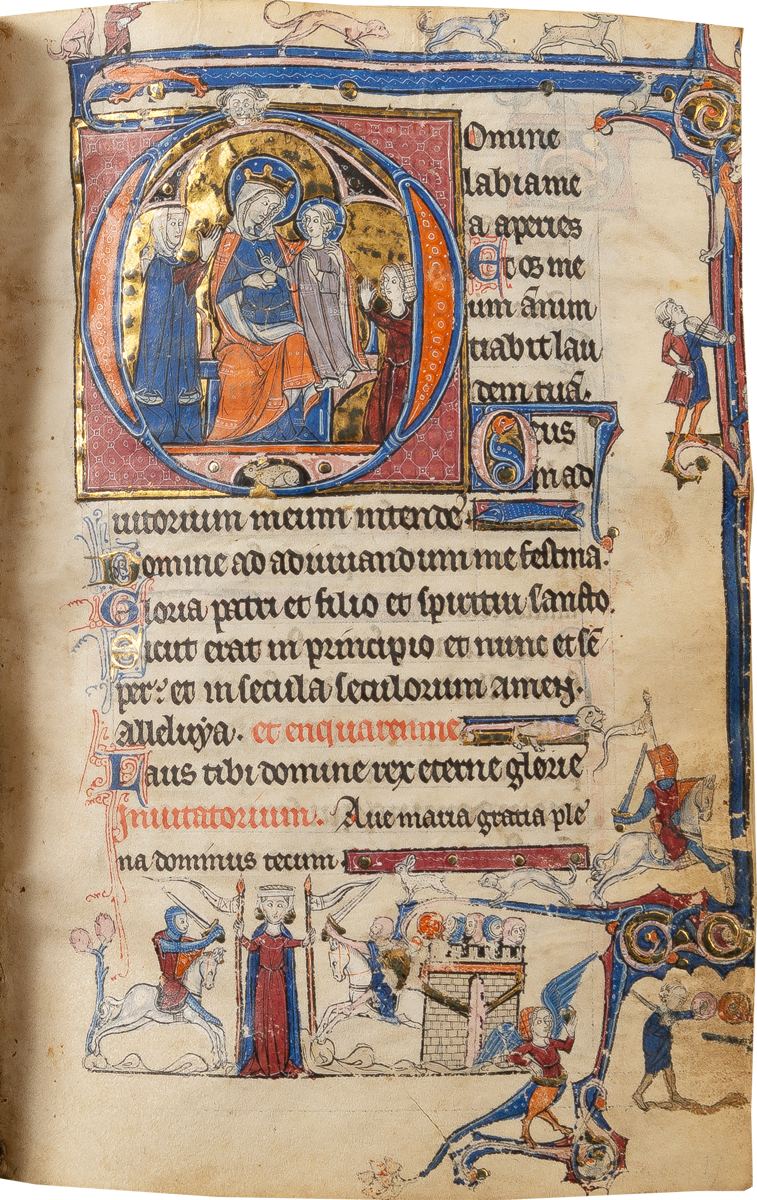 Domine
labia me
a aperies
Et os me
um ānun
tiabit lau
dem tuā.
Deus
in ad
iutorium meum intende
Domine ad adiuuandum me festina.
Gloria patri et filio et spiritui sancto.
Sicut erat in principio et nunc et sē
per: et in secula seculorum amen.
alleluya. et en quarenme
Laus tibi domine rex eterne glorie
Inuitatorium. Aue maria gracia ple
na dominus tecum